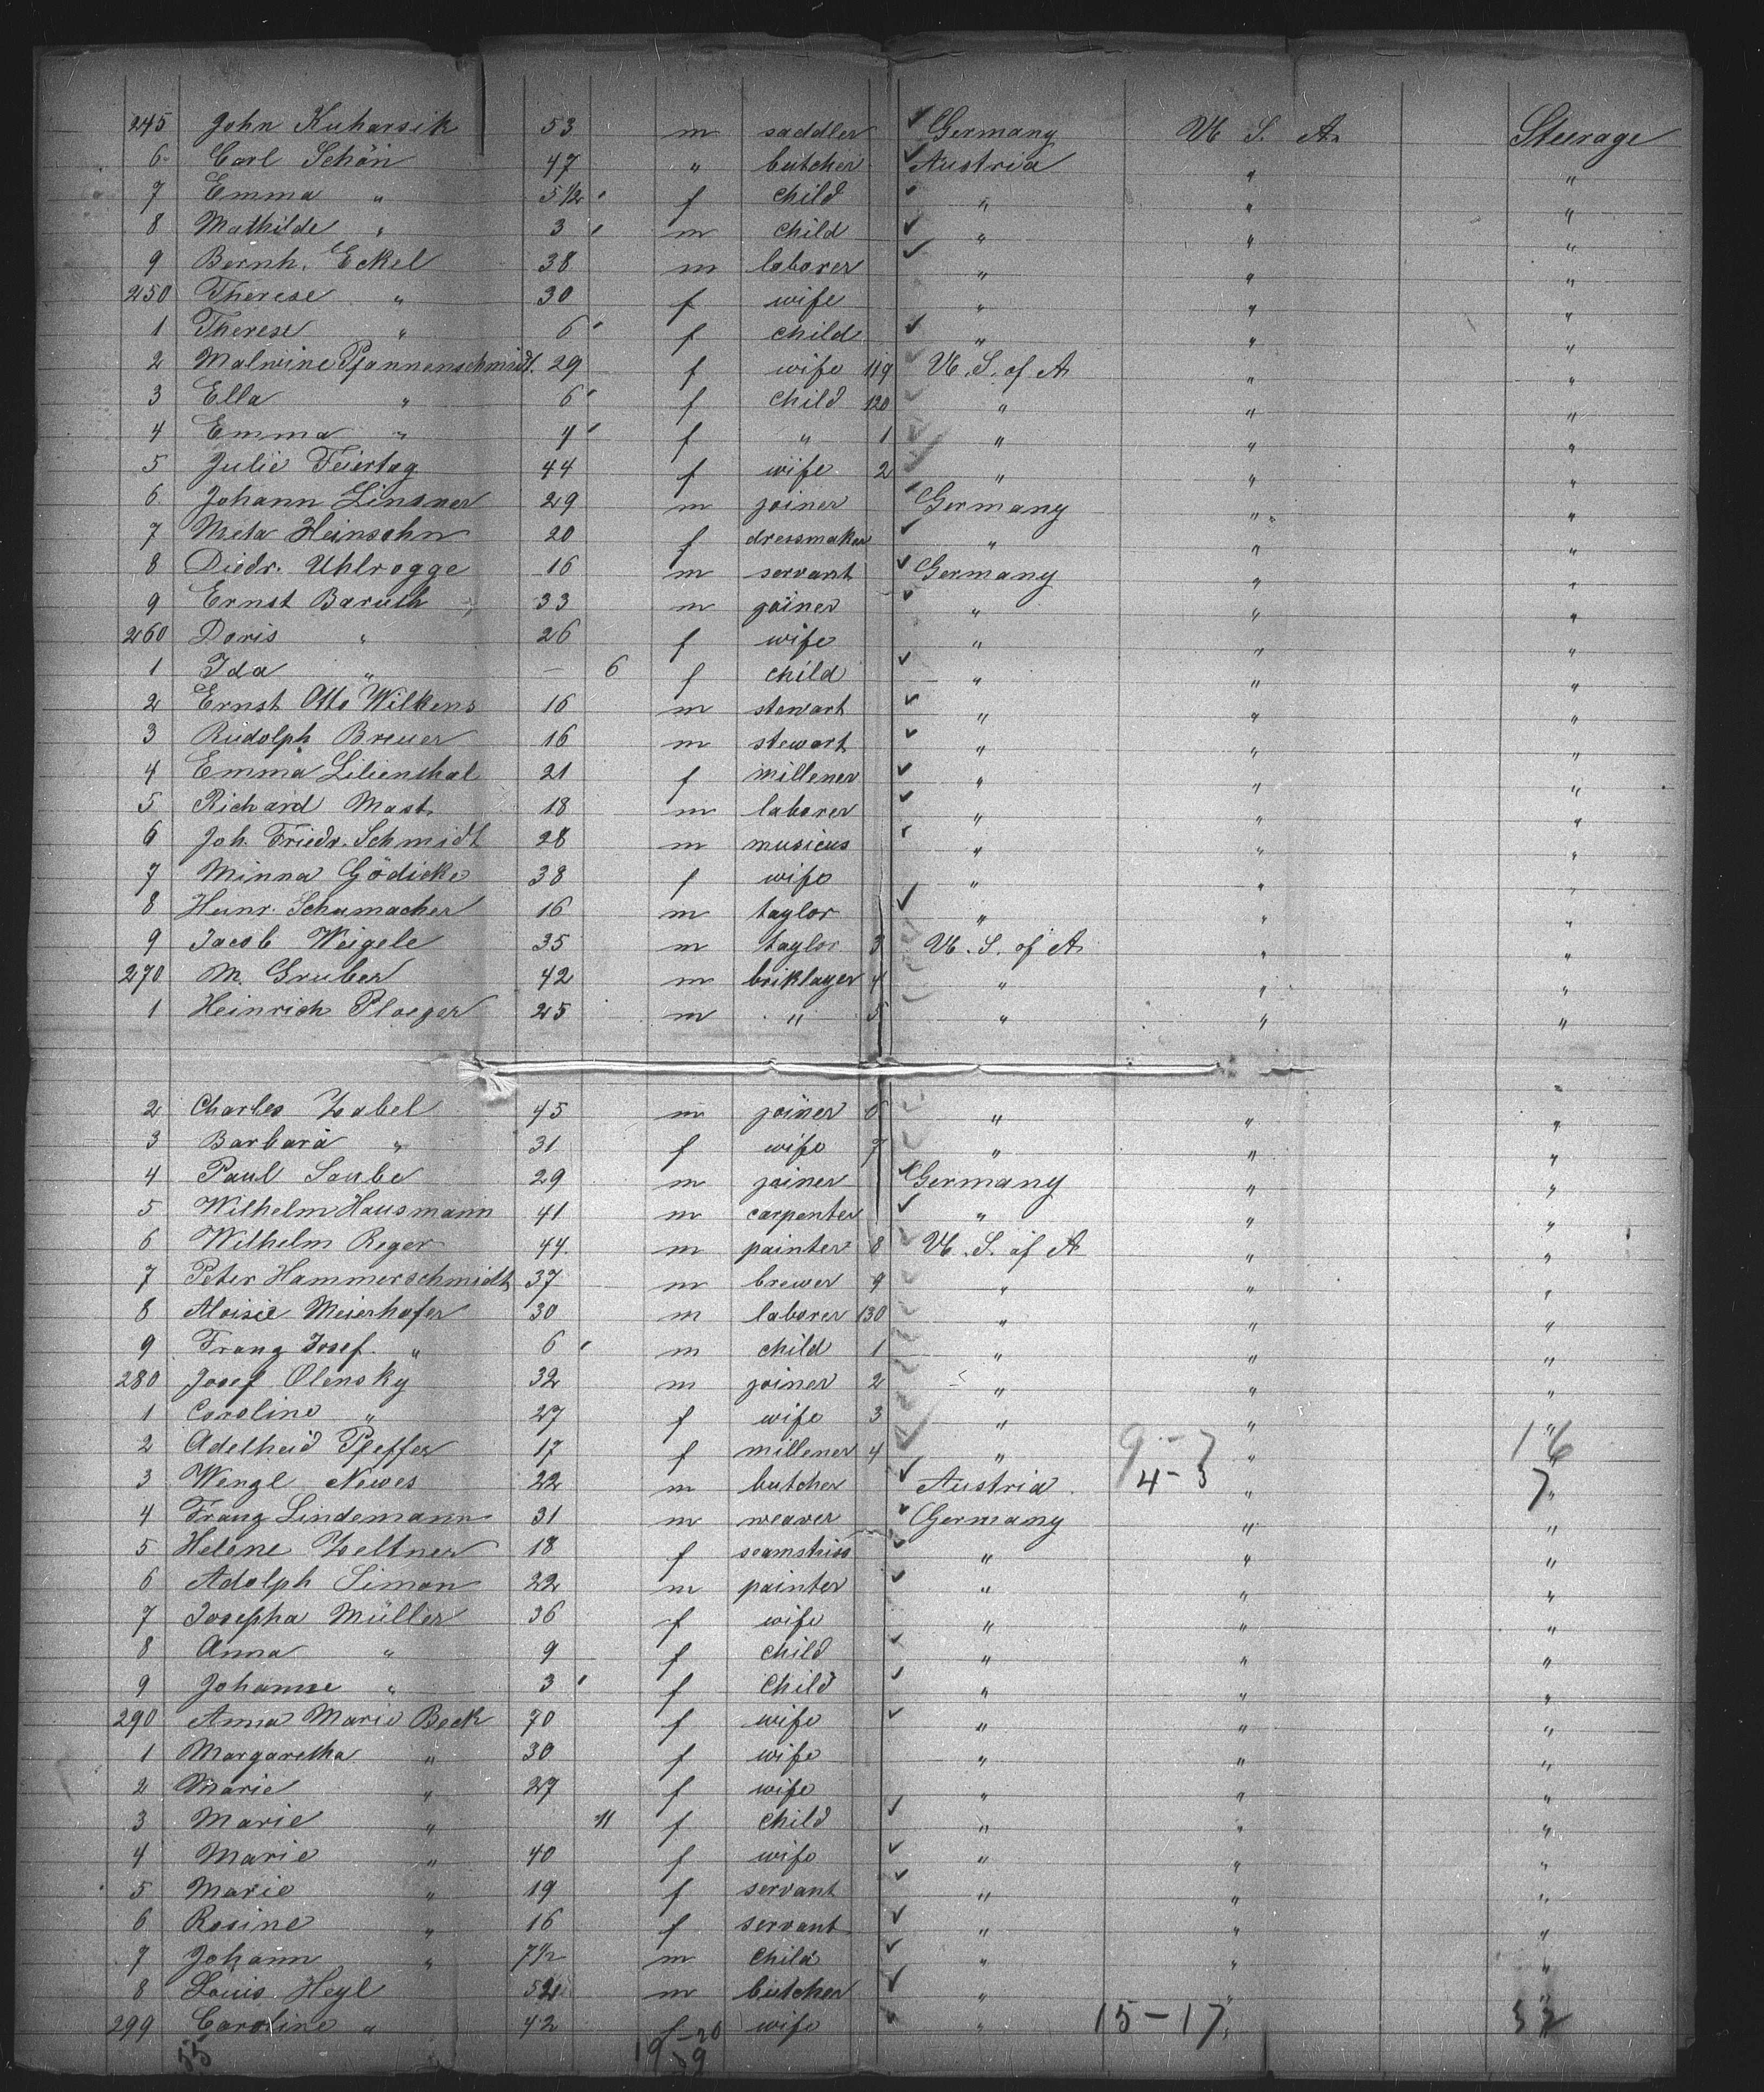 245 John Kuharsik 53 m saddler Germany U. S. A. Steerage
6 Carl Schön 47 " butcher Austria " "
7 Emma " 5 1/2 f child " " "
8 Mathilde " 3 m child " " "
9 Bernh. Eckel 38 m laborer " " "
250 Therese " 30 f wife " " "
1 Therese " 6 f child " " "
2 Malwine Pfannenschmidt. 29 f wife 119 U. S. of A " "
3 Ella " 6 f child 120 " " "
4 Emma " 4 f " 1 " " "
5 Julie Feiertag 44 f wife 2 " " "
6 Johann Linsner 29 m joiner Germany " "
7 Meta Heinsohn 20 f dressmaker " " "
8 Diedr. Uhlrogge 16 m servant Germany " "
9 Ernst Baruth 33 m joiner " " "
260 Doris " 26 f wife " " "
1 Ida " — 6 f child " " "
2 Ernst Otto Wilkens 16 m stewart " " "
3 Rudolph Breuer 16 m stewart " " "
4 Emma Lilienthal 21 f millener " " "
5 Richard Mast 18 m laborer " " "
6 Joh. Friedr. Schmidt 28 m musicus " " "
7 Minna Gödicke 38 f wife " " "
8 Heinr. Schumacher 16 m taylor " " "
9 Jacob Weigele 35 m taylor 3 U. S. of A " "
270 M. Gruber 42 m briklayer 4 " " "
1 Heinrich Ploeger 25 m " 5 " " "
2 Charles Zabel 45 m joiner 6 " " "
3 Barbara " 31 f wife 7 " " "
4 Paul Saube 29 m joiner Germany " "
5 Wilhelm Hausmann 41 m carpenter " " "
6 Wilhelm Reger 44. m painter 8 U. S. of A " "
7 Peter Hammerschmidt 37 m brewer 9 " " "
8 Aloisie Meierhofer 30 m laborer 130 " " "
9 Franz Josef " 6 m child 1 " " "
280 Josef Olensky 32 m joiner 2 " " "
1 Caroline " 27 f wife 3 " " "
2 Adelheid Pfeffer 17 f millener 4 " 9-7 " 16 "
3 Wenzl Newes 22 m butcher Austria 4-3 " 7 "
4 Franz Lindemann 31 m weaver Germany " "
5 Helene Zeltner 18 f seamstriss " " "
6 Adolph Simon 22 m painter " " "
7 Josepha Müller 36 f wife " " "
8 Anna " 9 f child " " "
9 Johanne " 3 f child " " "
290 Anna Marie Beck 70 f wife " " "
1 Margaretha " 30 f wife " " "
2 Marie " 27 f wife " " "
3 Marie " 11 f child " " "
4 Marie " 40 f wife " " "
5 Marie " 19 f servant " " "
6 Rosine " 16 f servant " " "
7 Johann " 7 1/2 m child " " "
8 Louis Heyl 52 m butcher " " "
299 Caroline " 42 f wife " 15-17 " 32
55 19-20
39